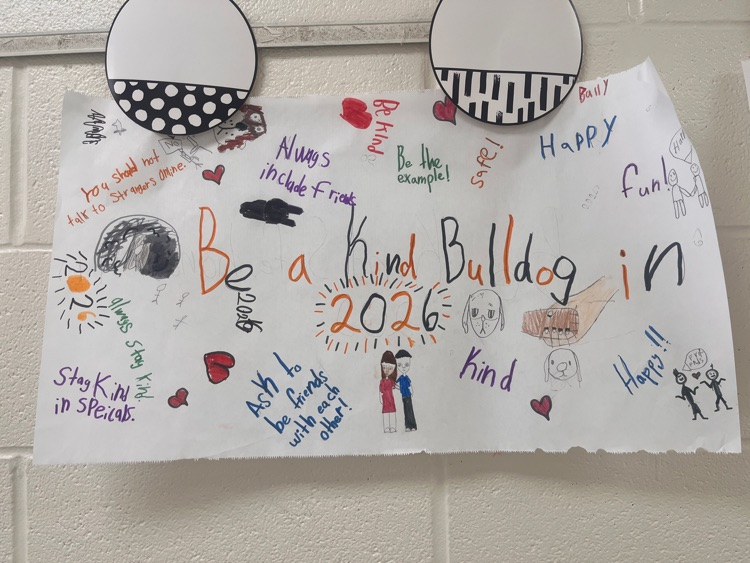 Bully
Be Kind
Happy
Always
include Friends
Be the
example!
safe!
You should not
talk to Strangers Online.
fun!
Be a Kind Bulldog in
2026
2026
2026
always Stay Kind.
Stay Kind
in Speicals.
Ask to
be friends
with each
other!
Kind
Happy!!